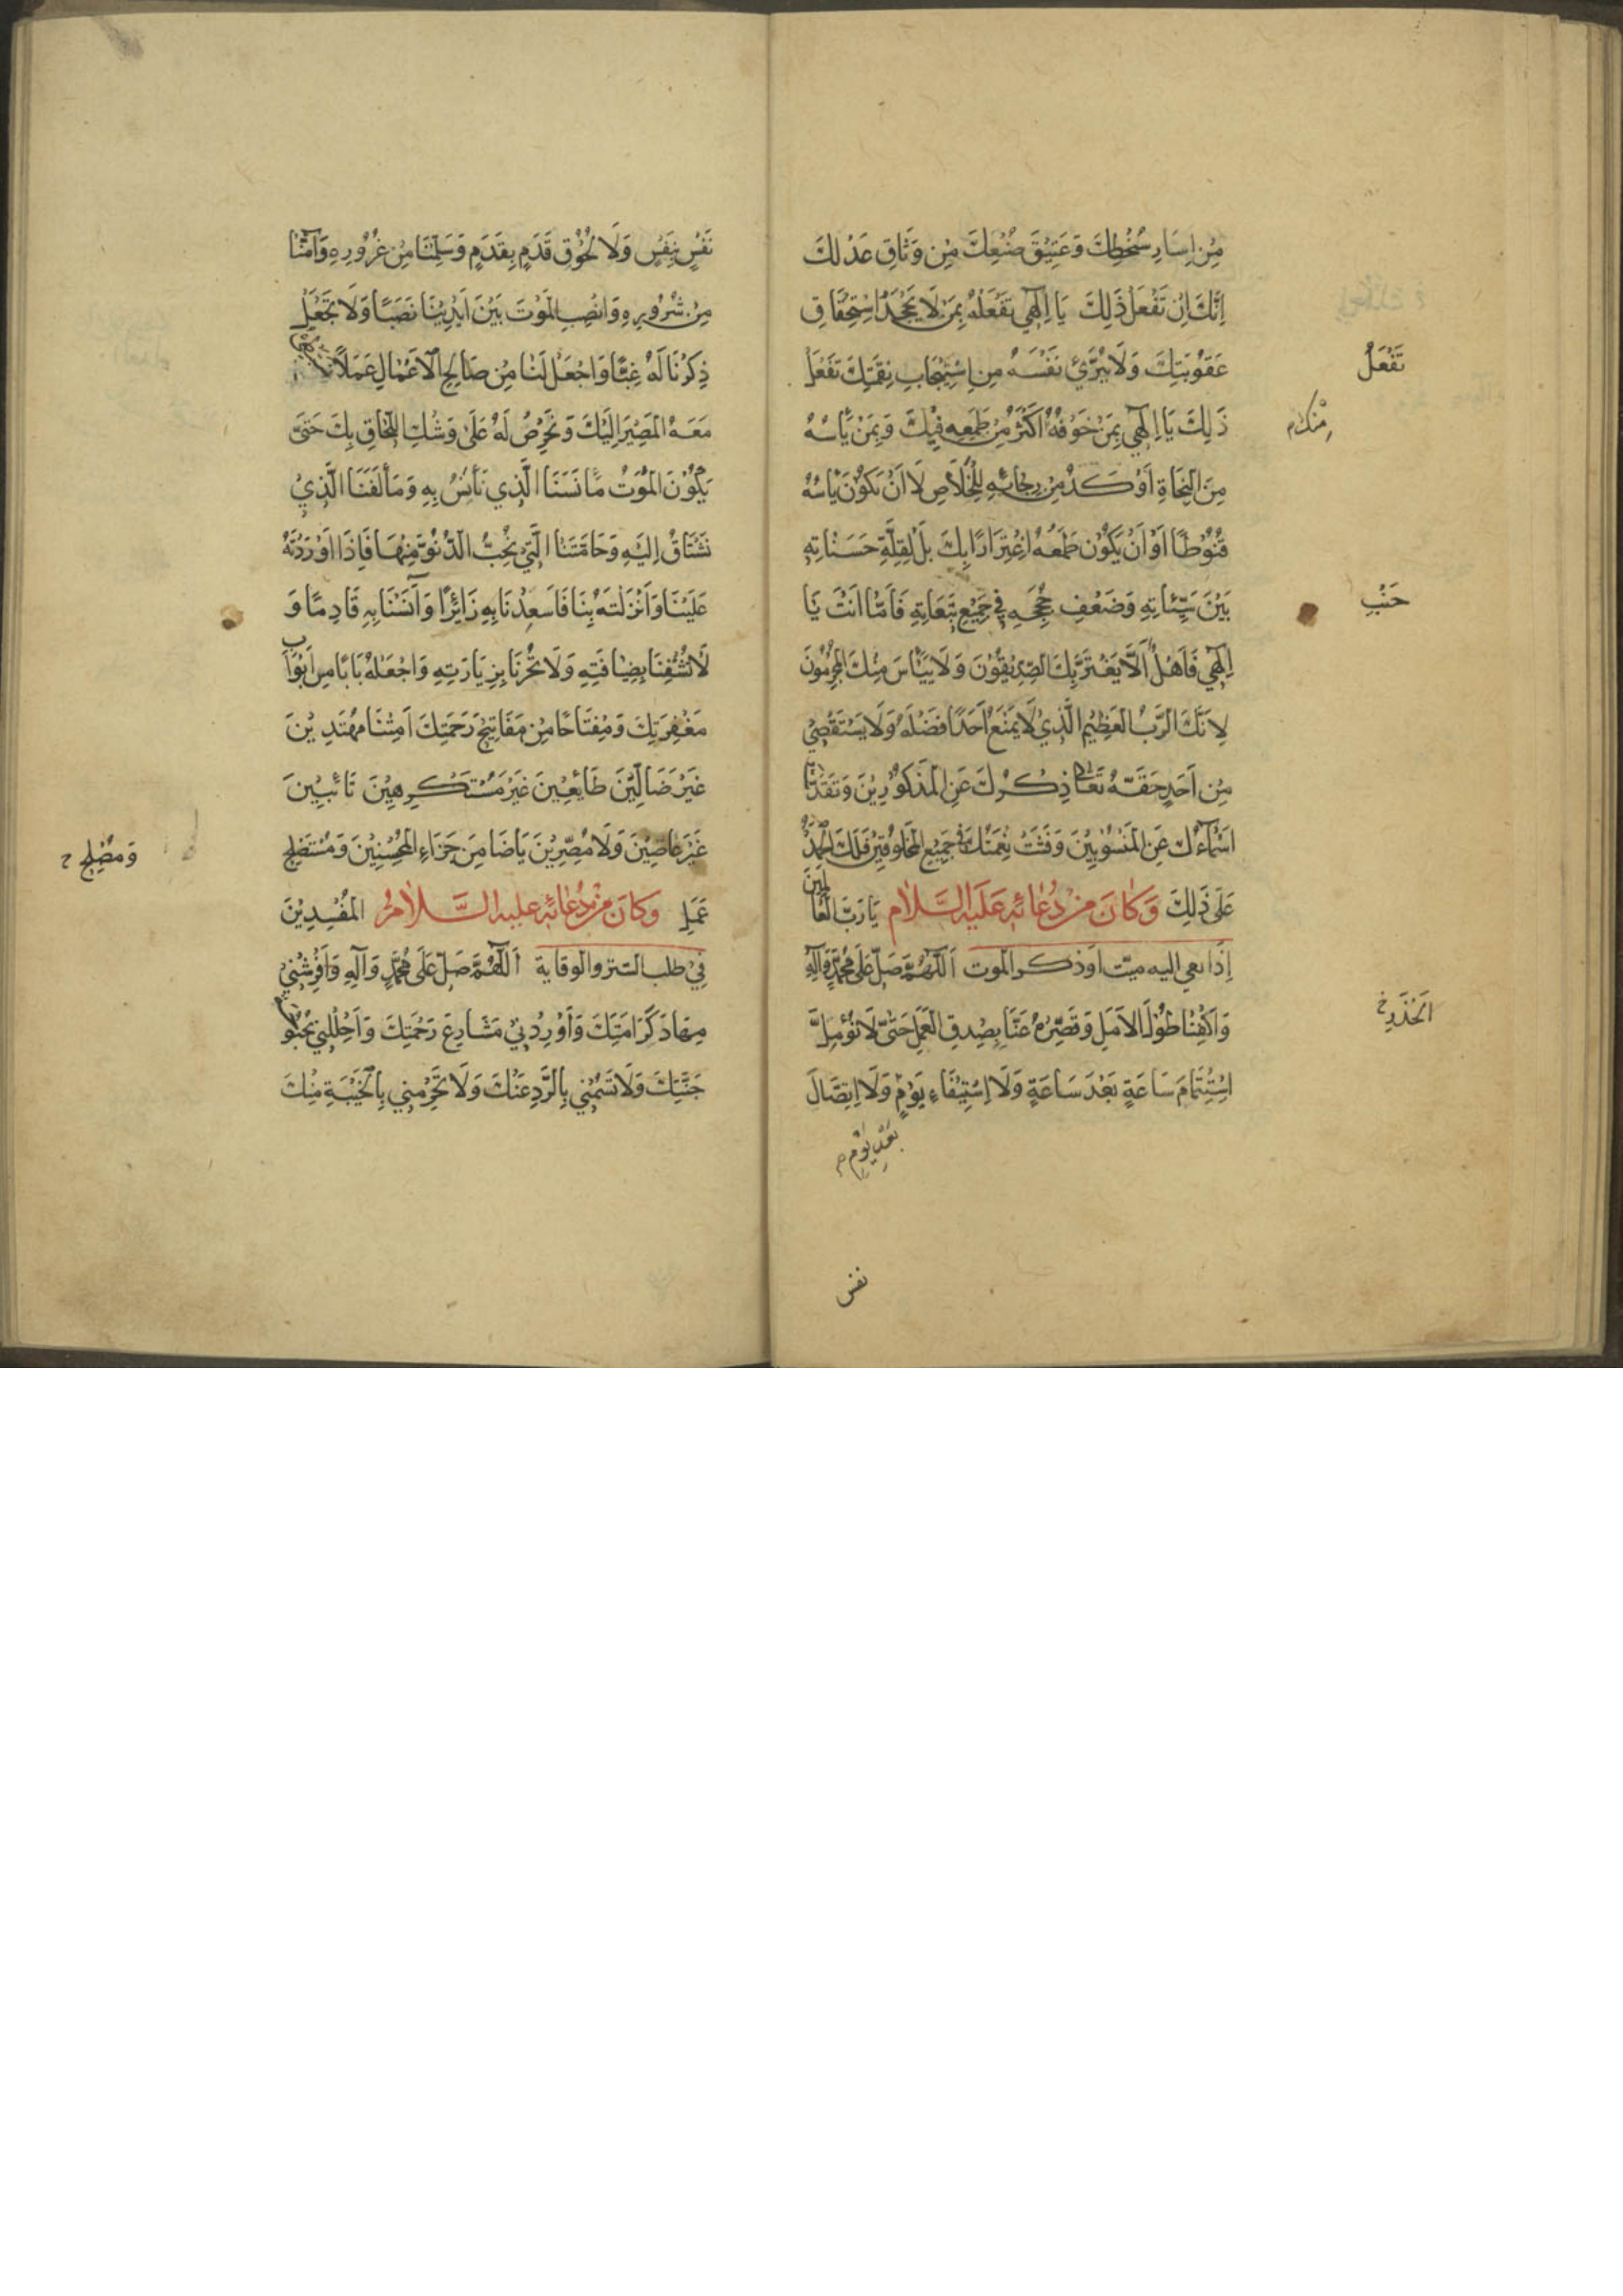 مِنْ اِسَارِ سُخْطِكَ وَعَتِيْقَ صُنْعِكَ مِنْ وَثَاقِ عَدْلِكَ
اِنَّكَ اِنْ تَفْعَلْ ذٰلِكَ يَا اِلٰهِي تَفْعَلْهُ بِمَنْ لَا يَجْحَدُ اسْتِحْقَاقَ
عَقُوْبَتِكَ وَلَا يُبَرِّئُ نَفْسَهُ مِنِ اسْتِيْجَابِ نِقْمَتِكَ تَفْعَلْ
تَفْعَلُ
ذٰلِكَ يَا اِلٰهِي بِمَنْ خَوْفُهُ اَكْثَرُ مِنْ طَمَعِهِ فِيْكَ وَبِمَنْ يَأْسُهُ
مِنْكَ م
مِنَ النَّجَاةِ اَوْكَدُ مِنْ رَجَائِهِ لِلْخَلَاصِ لَا اَنْ يَكُوْنَ يَأْسُهُ
قُنُوْطًا اَوْ اَنْ يَكُوْنَ طَمَعُهُ اغْتِرَارًا بِكَ بَلْ لِقِلَّةِ حَسَنَاتِهِ
بَيْنَ سَيِّئَاتِهِ وَضَعْفِ حُجَجِهِ فِي جَمِيْعِ تَبِعَاتِهِ فَاَمَّا اَنْتَ يَا
جَنْبِ
اِلٰهِي فَاَهْلٌ اَلَّا يَغْتَرَّ بِكَ الصِّدِّيْقُوْنَ وَلَا يَيْأَسَ مِنْكَ الْمُجْرِمُوْنَ
لِاَنَّكَ الرَّبُّ الْعَظِيْمُ الَّذِيْ لَا يَمْنَعُ اَحَدًا فَضْلَهُ وَلَا يَسْتَقْصِيْ
مِنْ اَحَدٍ حَقَّهُ تَعَالٰى ذِكْرُكَ عَنِ الْمَذْكُوْرِيْنَ وَتَقَدَّسَتْ
اَسْمَاؤُكَ عَنِ الْمَنْسُوْبِيْنَ وَفَشَتْ نِعْمَتُكَ فِي جَمِيْعِ الْمَخْلُوْقِيْنَ فَلَكَ الْحَمْدُ
عَلٰى ذٰلِكَ يَا رَبَّ الْعَالَمِيْنَ وَكَانَ مِنْ دُعَائِهِ عَلَيْهِ السَّلَامُ
اِذَا نعي اليه ميّت اوذكر الموت اَللّٰهُمَّ صَلِّ عَلٰى مُحَمَّدٍ وَآلِهِ
وَاكْفِنَا طُوْلَ الْاَمَلِ وَقَصِّرْهُ عَنَّا بِصِدْقِ الْعَمَلِ حَتّٰى لَا نُؤَمِّلَ
اسْتِتْمَامَ سَاعَةٍ بَعْدَ سَاعَةٍ وَلَا اسْتِيْفَاءَ يَوْمٍ وَلَا اتِّصَالَ
بَعْدَ يَوْمٍ م
نفس
نَفَسٍ بِنَفَسٍ وَلَا لُحُوْقَ قَدَمٍ بِقَدَمٍ وَسَلِّمْنَا مِنْ غُرُوْرِهِ وَآمِنَّا
مِنْ شُرُوْرِهِ وَانْصِبِ الْمَوْتَ بَيْنَ اَيْدِيْنَا نَصْبًا وَلَا تَجْعَلْ
ذِكْرَنَا لَهُ غِبًّا وَاجْعَلْ لَنَا مِنْ صَالِحِ الْاَعْمَالِ عَمَلًا
مَعَهُ الْمَصِيْرَ اِلَيْكَ وَنَحْرِصُ لَهُ عَلٰى وَشْكِ اللِّحَاقِ بِكَ حَتّٰى
يَكُوْنَ الْمَوْتُ مَأْنَسَنَا الَّذِي نَأْنَسُ بِهِ وَمَأْلَفَنَا الَّذِيْ
نَشْتَاقُ اِلَيْهِ وَحَامَّتَنَا الَّتِيْ نُحِبُّ الدُّنُوَّ مِنْهَا فَاِذَا اَوْرَدْتَهُ
عَلَيْنَا وَاَنْزَلْتَهُ بِنَا فَاَسْعِدْنَا بِهِ زَائِرًا وَآنِسْنَا بِهِ قَادِمًا وَ
لَا تُشْقِنَا بِضِيَافَتِهِ وَلَا تُخْزِنَا بِزِيَارَتِهِ وَاجْعَلْهُ بَابًا مِنْ اَبْوَابِ
مَغْفِرَتِكَ وَمِفْتَاحًا مِنْ مَفَاتِيْحِ رَحْمَتِكَ اَمِتْنَا مُهْتَدِيْنَ
غَيْرَ ضَالِّيْنَ طَائِعِيْنَ غَيْرَ مُسْتَكْرِهِيْنَ تَائِبِيْنَ
غَيْرَ عَاصِيْنَ وَلَا مُصِرِّيْنَ يَا ضَامِنَ جَزَاءِ الْمُحْسِنِيْنَ وَمُسْتَصْلِحَ
وَمُصْلِحَ
عَمَلِ الْمُفْسِدِيْنَ وَكَانَ مِنْ دُعَائِهِ عليه السَّلَامُ
فِيْ طلب الستر والوقاية اَللّٰهُمَّ صَلِّ عَلٰى مُحَمَّدٍ وَآلِهِ وَاَفْرِشْنِيْ
مِهَادَ كَرَامَتِكَ وَاَوْرِدْنِيْ مَشَارِعَ رَحْمَتِكَ وَاَحْلِلْنِيْ بُحْبُوْحَةَ
جَنَّتِكَ وَلَا تَسُمْنِيْ بِالرَّدِّ عَنْكَ وَلَا تَحْرِمْنِيْ بِالْخَيْبَةِ مِنْكَ